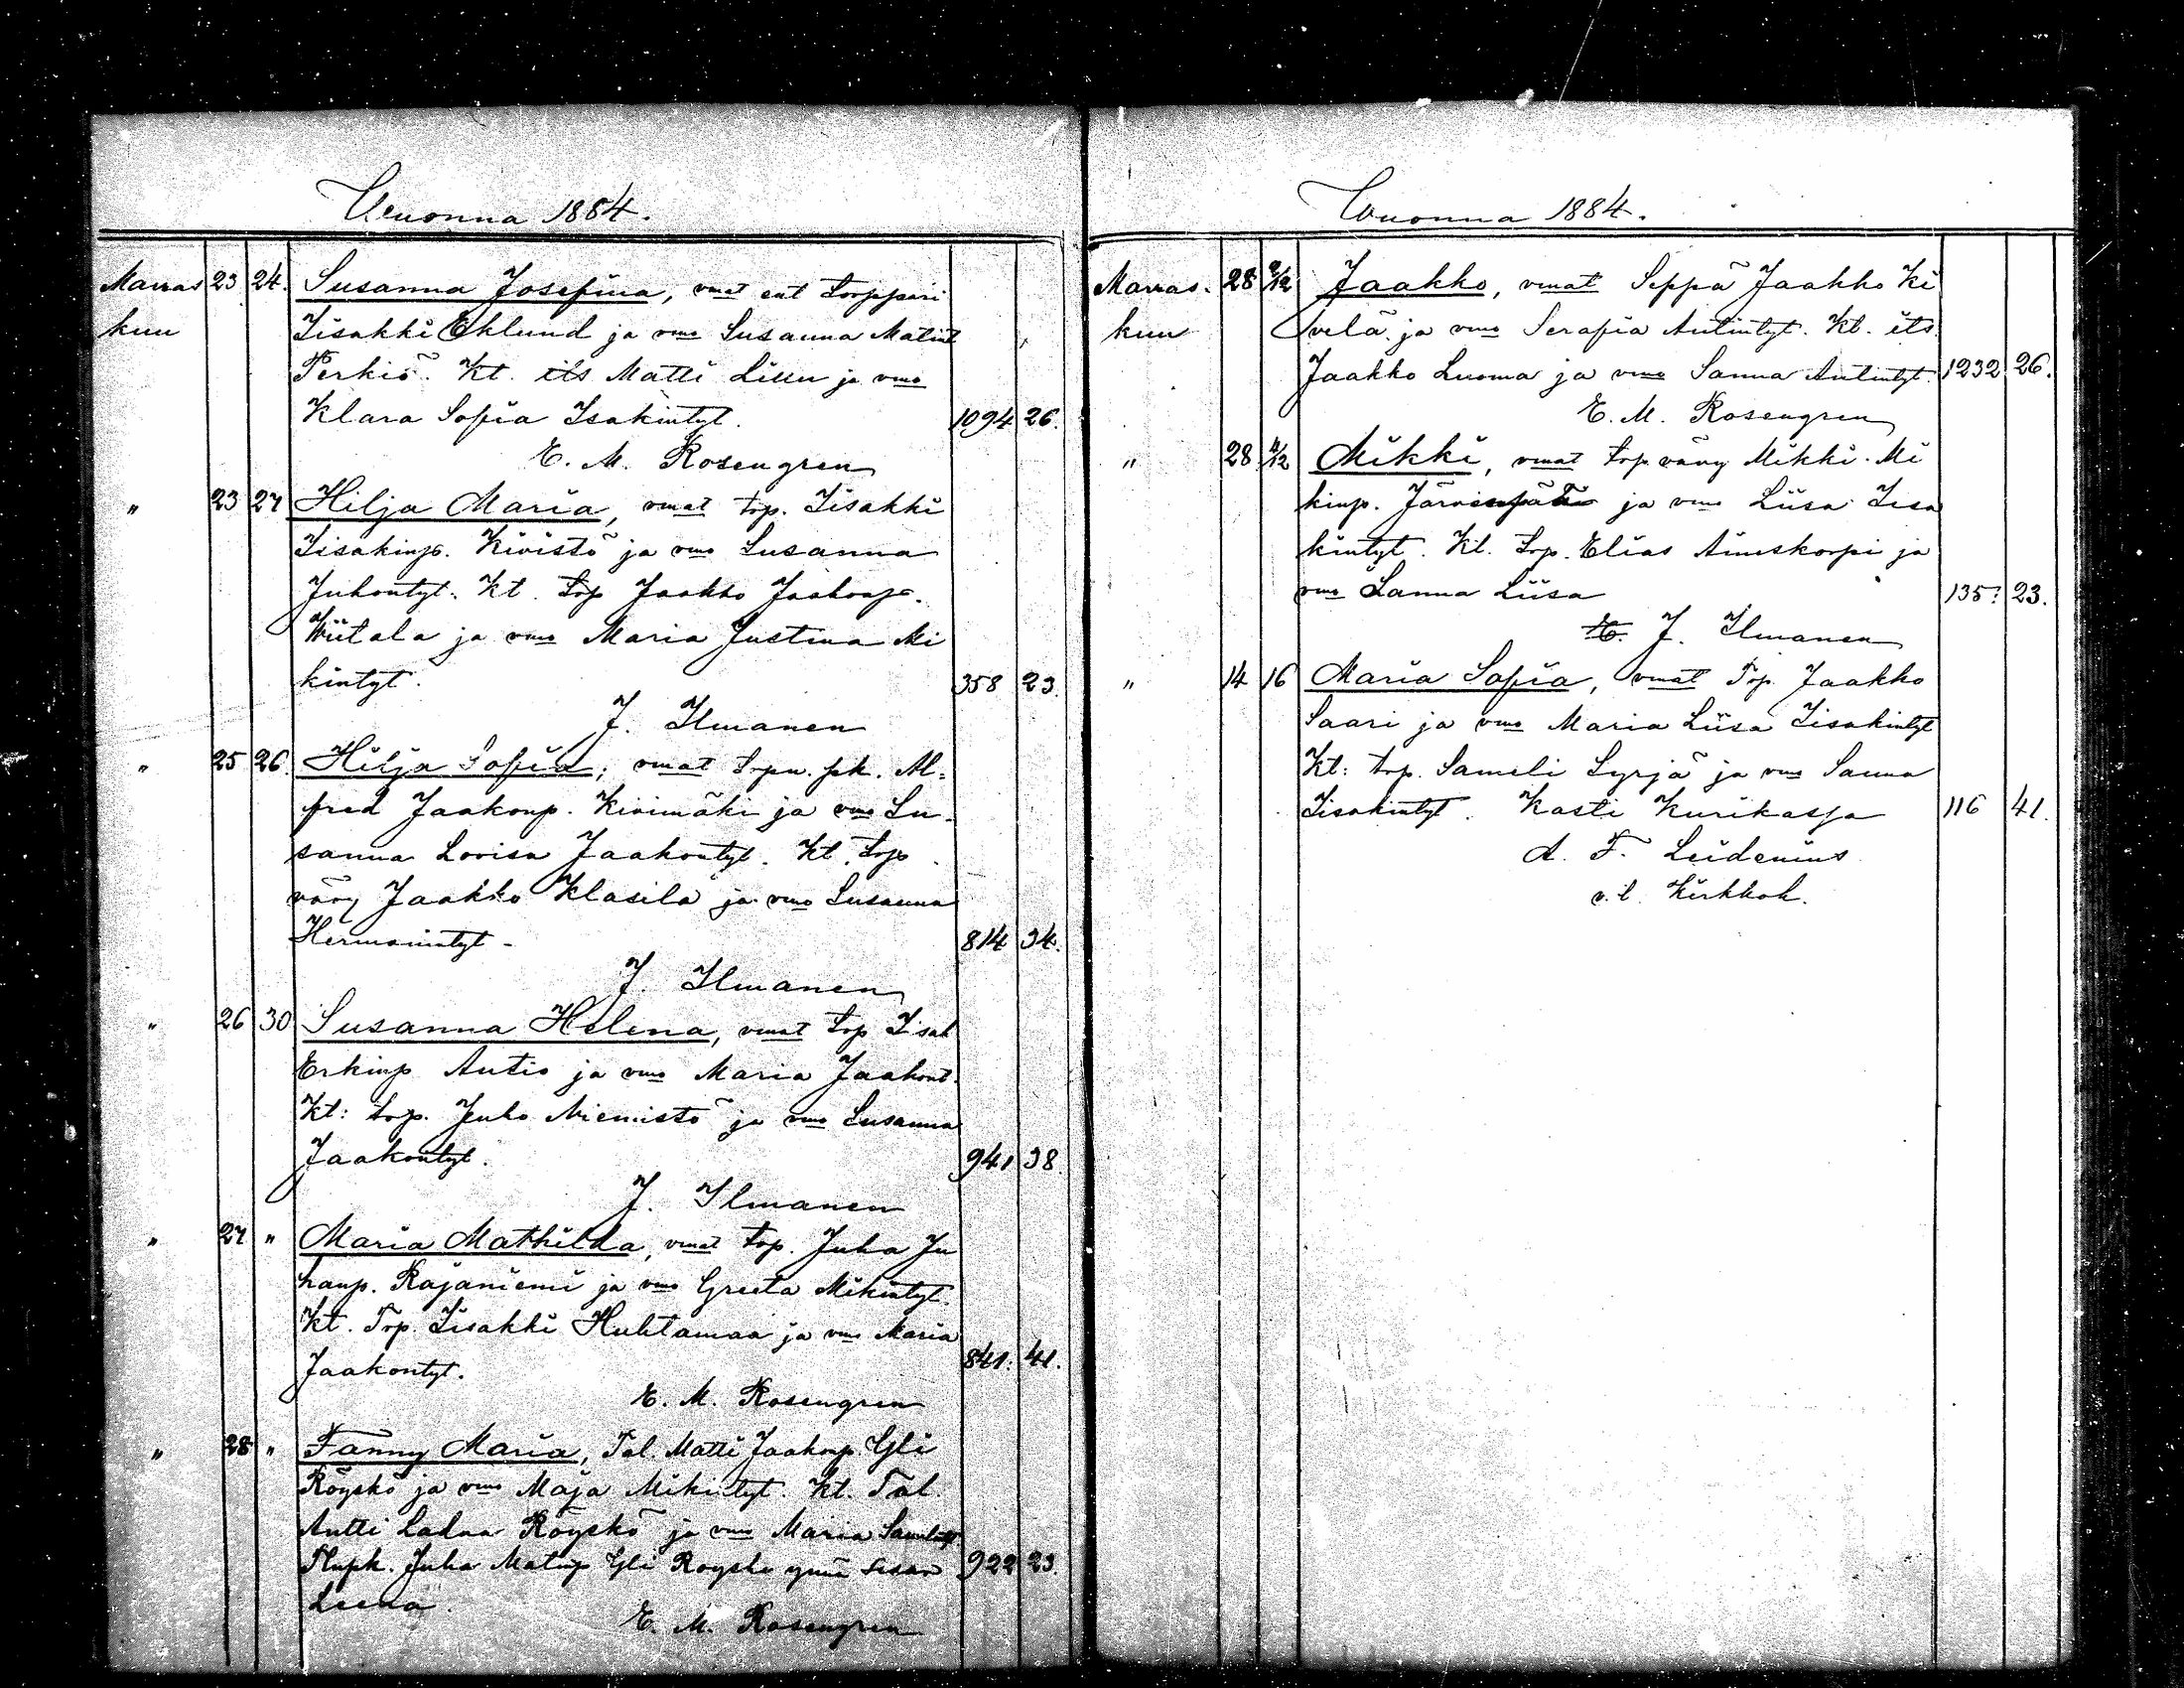 Wuonna 1884.
Marras 23 24. Susanna Josefina, vmat ent torppari
kuu Iisakki Eklund ja vmo Susanna Matint
Perkiö. Kt. its Matti Liuu ja vmo
Klara Sofia Isakintyt. 1094 26.
E. M. Rosengren
" 23 27 Hilja Maria, vmat trp. Iisakki
Iisakinp. Kivistö ja vmo Susanna
Juhontyt. Kt. trp Jaakko Jaakonp.
Wiitala ja vmo Maria Justina Mi
kintyt. 358 23.
J. Ilmanen
" 25 26. Hilja Sofia, vmat trpn. pk. Al=
fred Jaakonp. Kivimäki ja vmo Su-
sanna Lovisa Jaakontyt. Kt. trp
vävy Jaakko Klasila ja vmo Susanna
Hermanintyt - 814 34.
J. Ilmanen
" 26 30 Susanna Helena, vmat trp Iisak
Erkinp Autio ja vmo Maria Jaakont.
Kt: trp. Juho Niemistö ja vmo Susanna
Jaakontyt. 941 38
J. Ilmanen
" 27 " Maria Mathilda, vmat trp. Juha Ju
hanp. Rajaniemi ja vmo Greeta Mikintyt.
Kt. Trp. Iisakki Huhtamaa ja vmo Maria
Jaakontyt. 841. 41.
E. M. Rosengren
" 28 " Fanny Maria, Tal. Matti Jaakonp. Yli
Röyskö ja vmo Maja Mikintyt. Kt. Tal.
Antti Ladun Röyskö ja vmo Maria
Juha Matinp Yli Röyskö ynnä sisar 922 23.
Leena.
E. M. Rosengren
Wuonna 1884.
Marras. 28 2/12 Jaakko, vmat Seppä Jaakko Ki
kuu velä ja vmo Serafia Antintyt. Kt. its.
Jaakko Luoma ja vmo Sanna Antintyt. 1232 26.
E. M. Rosengren
" 28 Mikki, vmat trp. vävy Mikki Mi
kinp. Järvenpää ja vmo Liisa Iisa
kintyt. Kt. trp. Elias Ämeskorpi ja
vmo Sanna Liisa 135. 23.
E. J. Ilmanen
" 14 16 Maria Sofia, vmat Trp. Jaakko
Saari ja vmo Maria Liisa Iisakintyt
Kt: trp. Sameli Syrjä ja vmo Sanna
Iisakintyt. Kasti Kurikassa 116 41.
A. F. Leidenius
v. t. Kirkkoh.